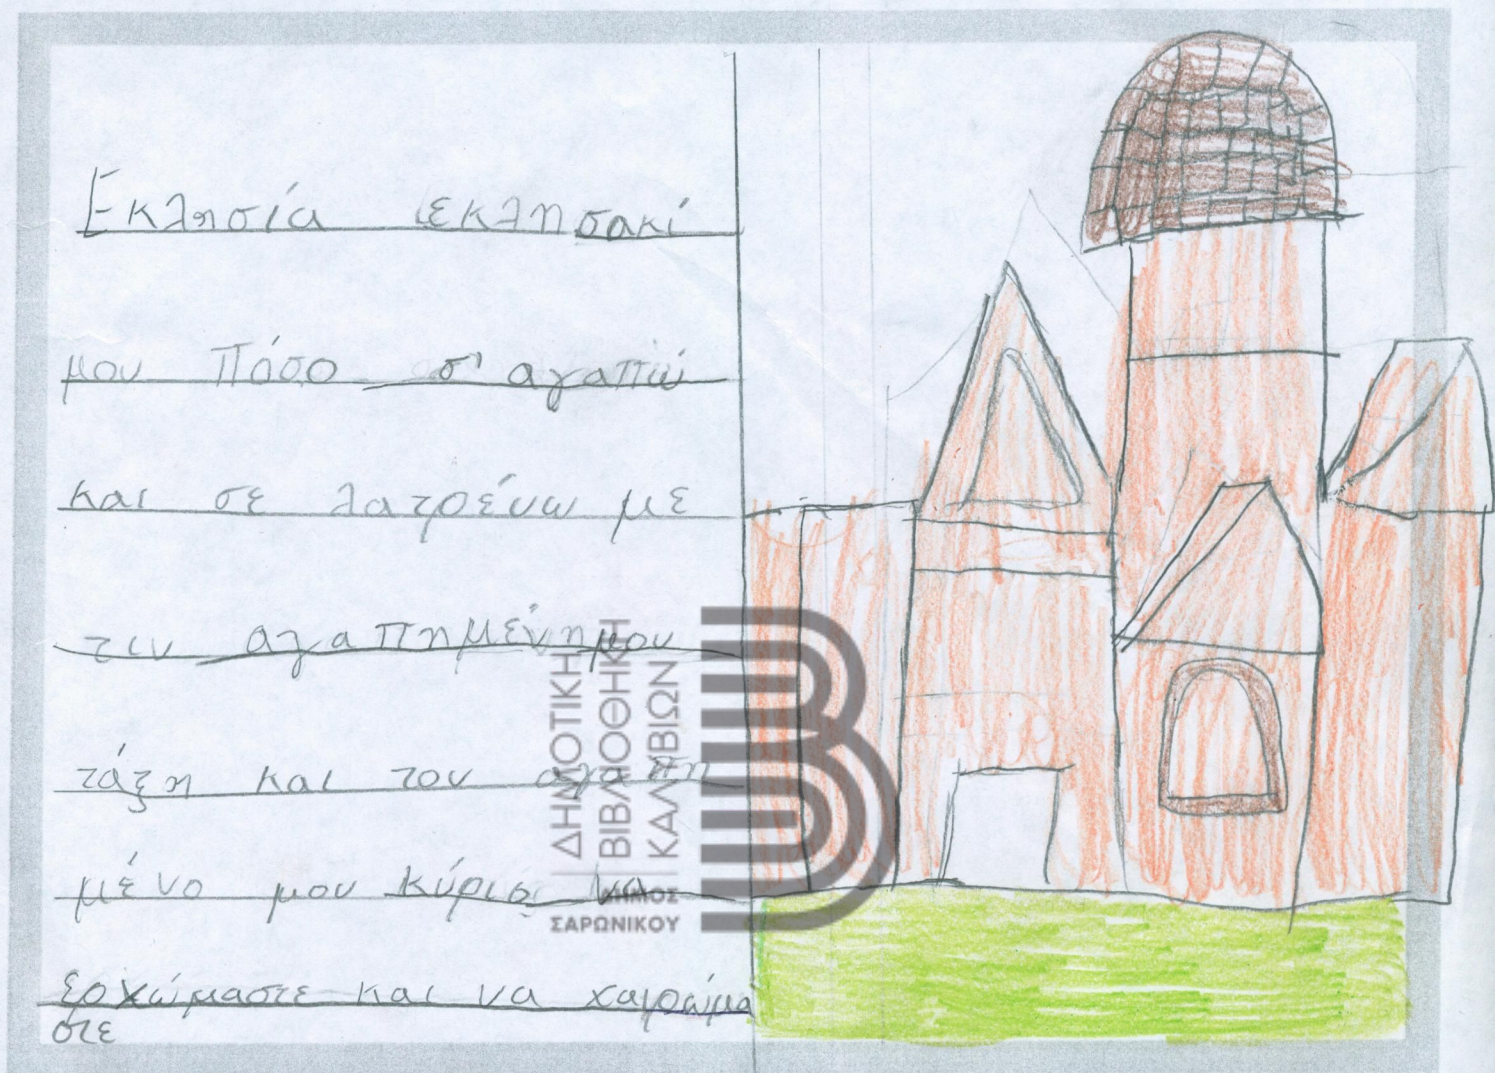 Εκλησία εκλησακί
μου Πόσο σ' αγαπώ
και σε λατρέυω με
τιν αγαπημένη μου
τάξη και τον αγαπη
μένο μου κύριο να
ερχώμαστε και να χαιρώμα
στε
ΔΗΜΟΤΙΚΗ
ΒΙΒΛΙΟΘΗΚΗ
ΚΑΛΥΒΙΩΝ
ΔΗΜΟΣ
ΣΑΡΩΝΙΚΟΥ